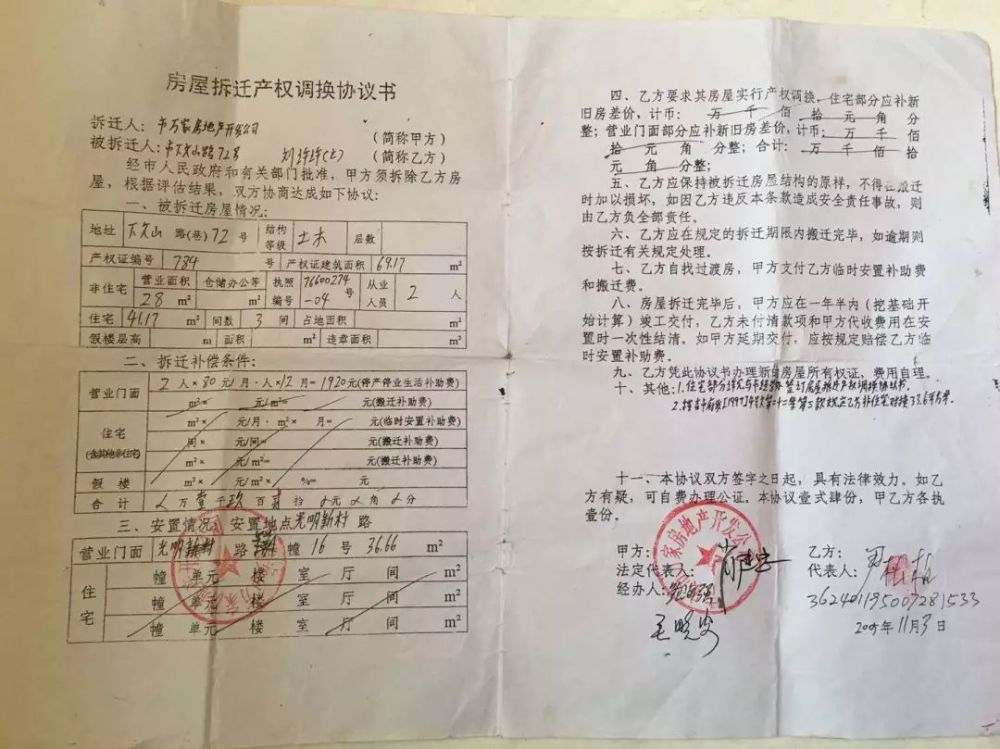 房屋拆迁产权调换协议书
拆迁人：市万家房地产开发公司 （简称甲方）
被拆迁人：市下文山路72号 （简称乙方）
经市人民政府和有关部门批准，甲方须拆除乙方房
屋，根据评估结果，双方协商达成如下协议：
一、被拆迁房屋情况：
地址 下文山 路(巷) 72 号 结构等级 土木 层数
产权证编号 784 号 产权证建筑面积 69.17 m²
非住宅 营业面积 仓储办公等 执照编号 76600274-04 号 从业人员 2 人
28 m² m²
住宅 41.17 m² 间数 3 间 占地面积 m²
假楼最高 m 面积 m² 违章面积 m²
二、拆迁补偿条件：
营业门面 2人×80元/月·人×12月=1920元(停产停业生活补助费)
m²× 元/m²= 元(搬迁补助费)
住宅(含其他非住宅) m²× 元/月·m²× 月= 元(临时安置补助费)
间× 元/间= 元(搬迁补助费)
m²× 元/m²= 元(搬迁补助费)
假楼 m²× 元/m²× %= 元
合计 万壹千玖百贰拾 元 角 分
三、安置情况：安置地点光明新村 路
营业门面 光明新村 路 幢 16 号 36.66 m²
住宅 幢 单元 楼 室 厅 间 m²
幢 单元 楼 室 厅 间 m²
幢 单元 楼 室 厅 间 m²
四、乙方要求其房屋实行产权调换，住宅部分应补新
旧房差价，计币： 万 千 佰 拾 元 角 分
整；营业门面部分应补新旧房差价，计币： 万 千 佰
拾 元 角 分整；合计： 万 千 佰 拾
元 角 分整；
五、乙方应保持被拆迁房屋结构的原样，不得在搬迁
时加以损坏，如因乙方违反本条款造成安全责任事故，则
由乙方负全部责任。
六、乙方应在规定的拆迁期限内搬迁完毕，如逾期则
按拆迁有关规定处理。
七、乙方自找过渡房，甲方支付乙方临时安置补助费
和搬迁费。
八、房屋拆迁完毕后，甲方应在一年半内（挖基础开
始计算）竣工交付，乙方未付清款项和甲方代收费用在安
置时一次性结清。如甲方延期交付，应按规定赔偿乙方临
时安置补助费。
九、乙方凭此协议书办理新房屋所有权证，费用自理。
十、其他：1.住宅部分 签订房屋拆迁产权调换协议书。
2. [1997] 号文第二十二条第二款规定乙方非住宅 33.6平方米。
十一、本协议双方签字之日起，具有法律效力。如乙
方有疑，可自费办理公证。本协议壹式肆份，甲乙方各执
壹份。
甲方：
法定代表人：
经办人：
毛晓安
家房地产开发公
乙方：
代表人：
362401195007281533
2005年11月3日